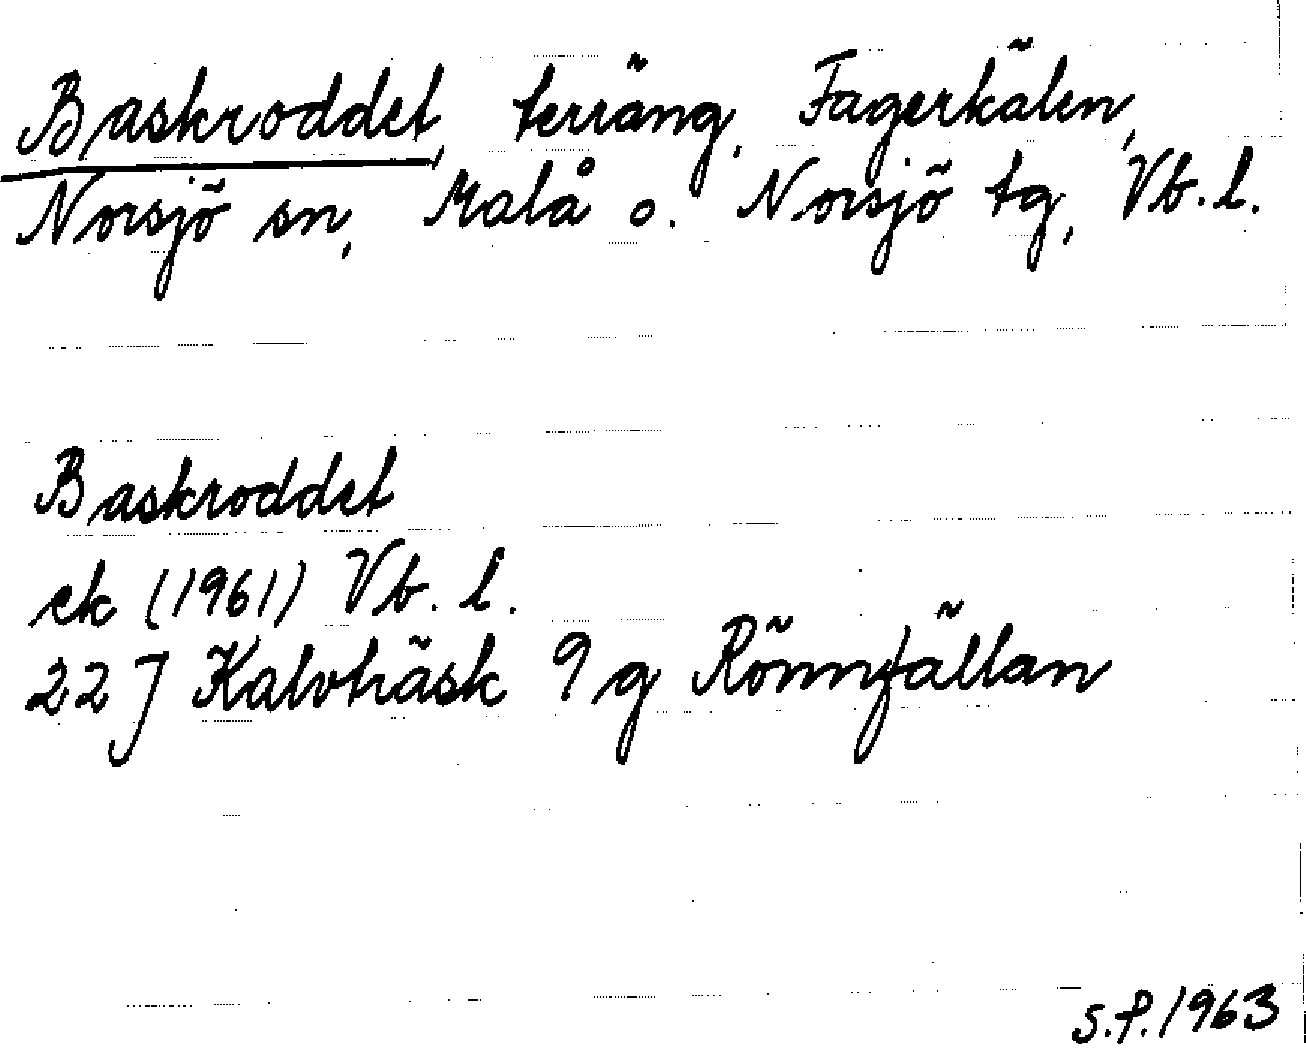 Baskroddet, terräng, Fagerkälen,
Norsjö sn, Malå o. Norsjö tg, Vb. l.
Baskroddet
ek (1961) Vb. l.
22 J Kalvträsk 9 g Rönnfällan
S.P. 1963